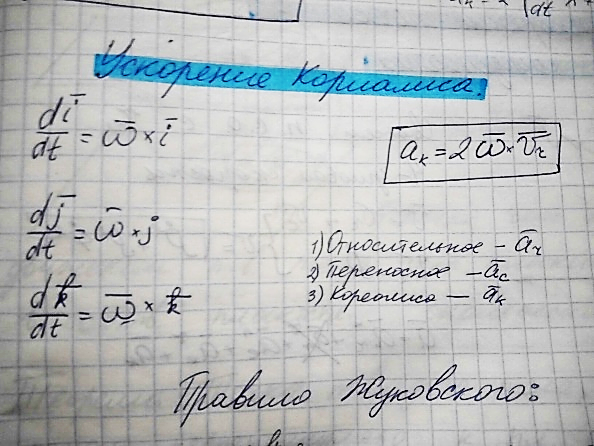 Ускорение Кориалиса.
di̅/dt = ω̅ × i̅
a_k = 2 ω̅ × V̅_r
dj̅/dt = ω̅ × j
1) Относительное – a̅_r
2) Переносное – a̅_c
3) Кореолиса – a̅_k
dk̅/dt = ω̅ × k̅
Правило Жуковского: